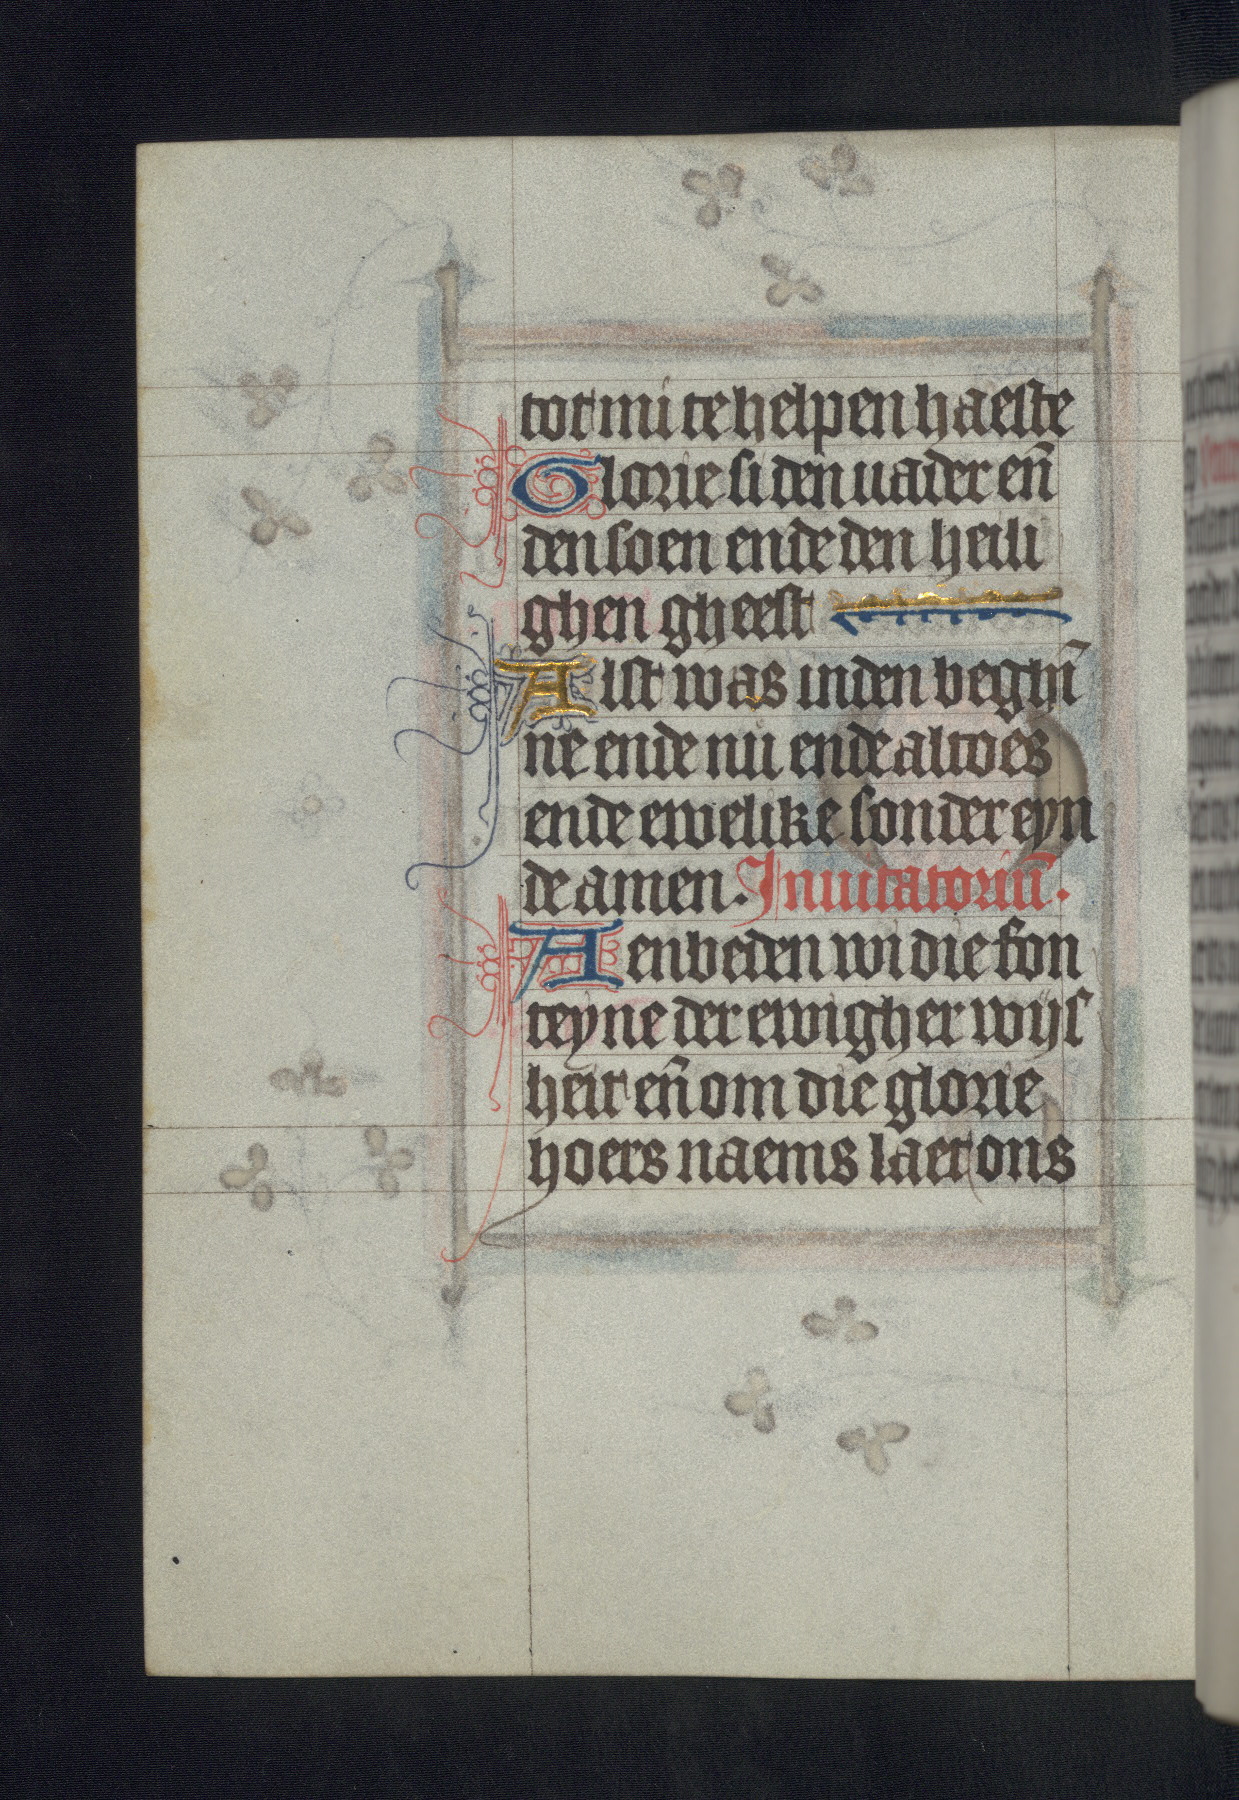 tot mi te helpen haeste
Glorie si den uader en̄
den soen ende den heili
ghen gheest
Alst was inden begin̄
ne ende nu ende altoes
ende ewelike sonder eyn
de amen. Inuitatoriū.
Aenbeden wi die fon
teyne der ewigher wijs
heit en̄ om die glorie
hoers naems laet ons